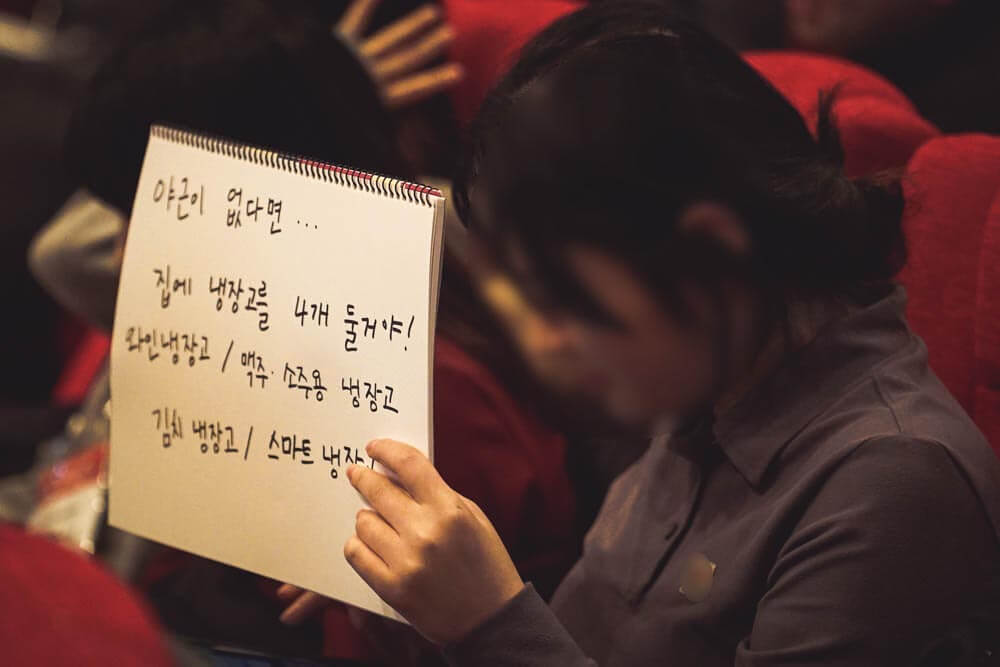 야근이 없다면...
집에 냉장고를 4개 둘거야!
와인냉장고 / 맥주·소주용 냉장고
김치 냉장고 / 스마트